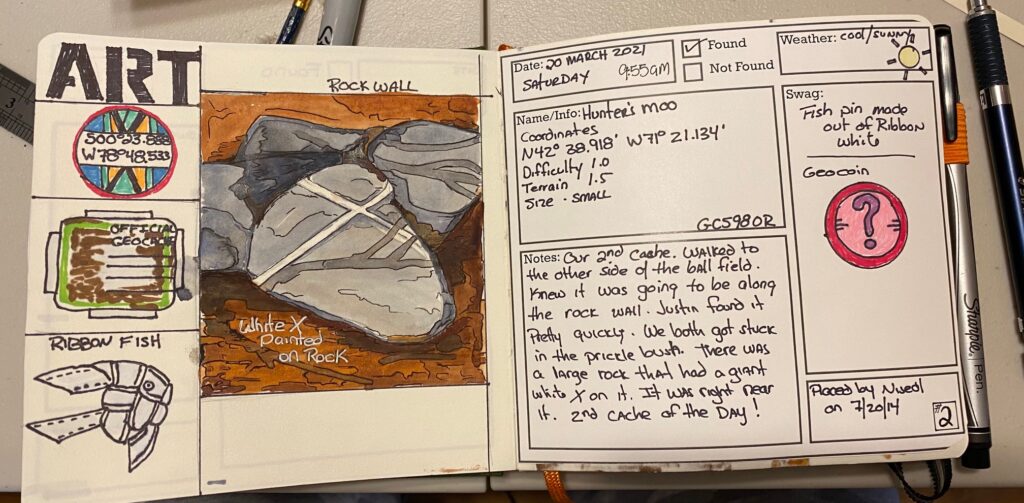 ART
W78°48.533
OFFICIAL
GEOCACHE
RIBBON FISH
ROCK WALL
White X
Painted
on Rock
Date: 20 MARCH 2021
SATURDAY 9:55am
Found
Not Found
Weather: cool/sunny
Name/Info: Hunter's moo
Coordinates
N42° 38.918' W71° 21.134'
Difficulty 1.0
Terrain 1.5
Size · SMALL
GC5980R
Notes: Our 2nd cache. Walked to
the other side of the ball field.
Knew it was going to be along
the rock wall. Justin found it
Pretty quickly. We both got stuck
in the prickle bush. There was
a large rock that had a giant
white X on it. It was right near
it. 2nd cache of the Day!
Swag:
Fish pin made
out of Ribbon
white
Geocoin
?
Placed by
on 7/20/14
#2
3
Sharpie. Pen